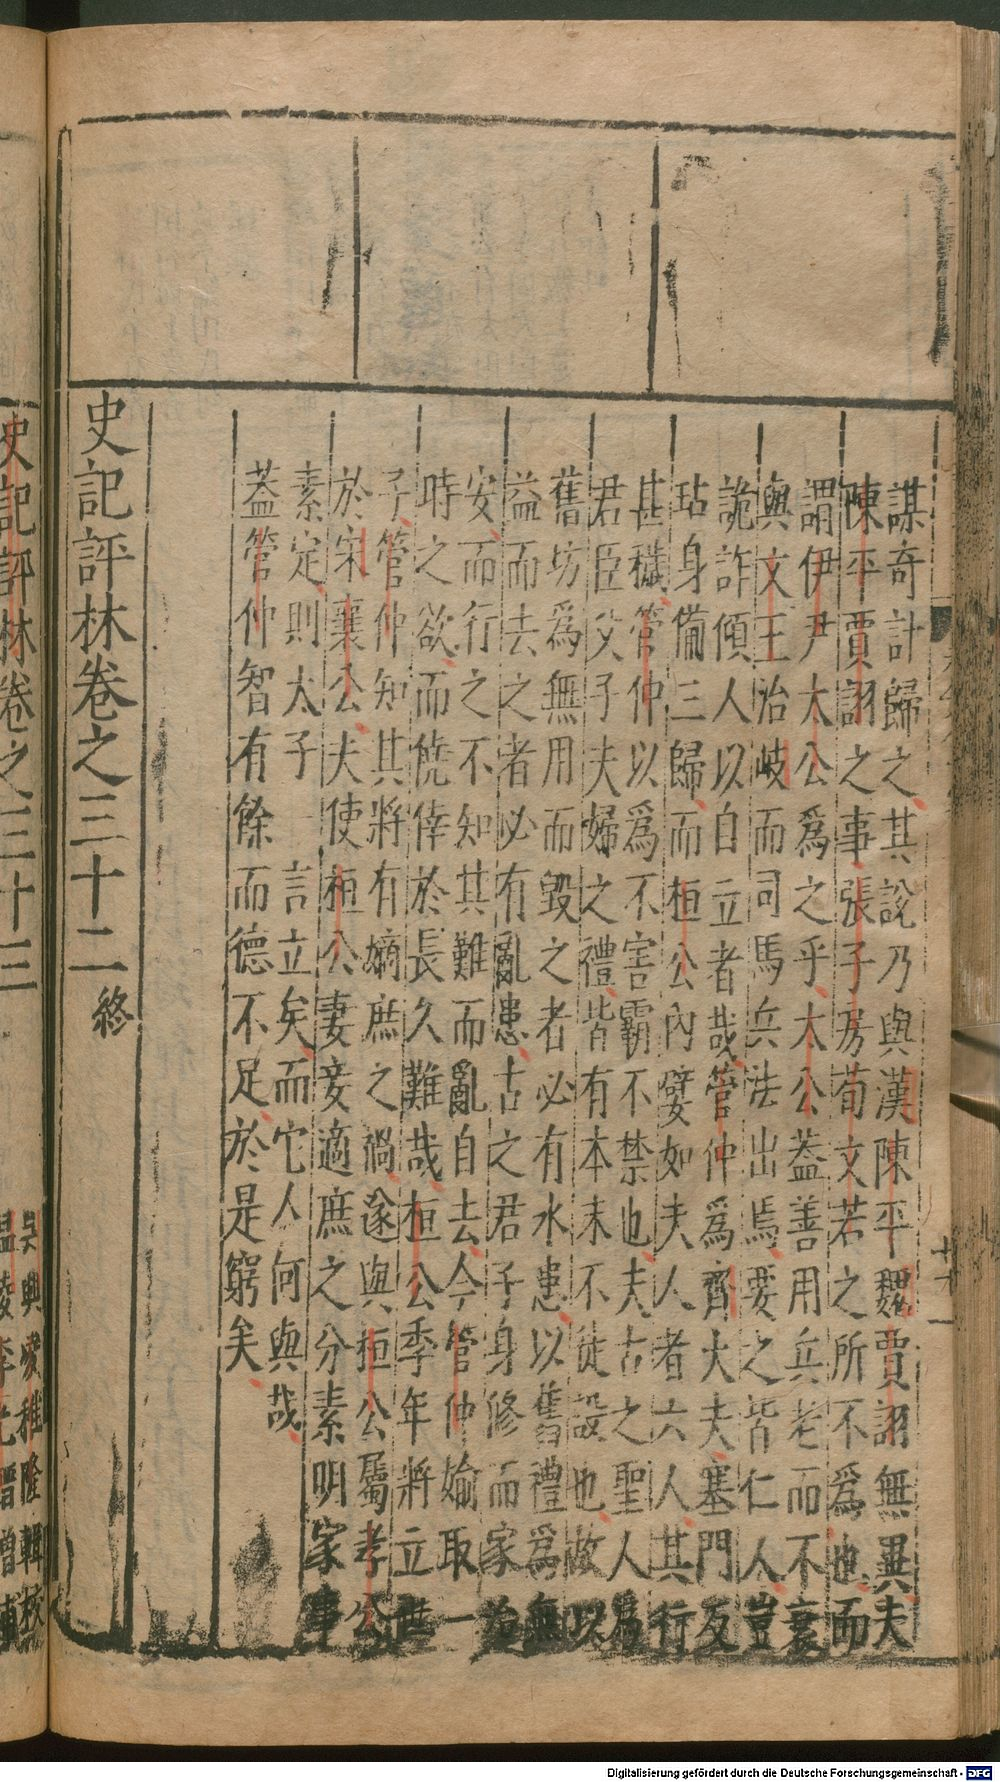 謀奇計歸之其說乃與漢陳平魏賈詡無異夫
陳平賈詡之事張子房荀文若之所不爲也而
謂伊尹太公爲之乎太公蓋善用兵老而不衰
與文王治岐而司馬兵法出焉要之皆仁人豈
詭詐傾人以自立者哉管仲爲齊大夫塞門反
玷身備三歸而桓公內嬖如夫人者六人其行
甚穢管仲以爲不害霸不禁也夫古之聖人爲
君臣父子夫婦之禮皆有本末不徒設也故以
舊坊爲無用而毀之者必有水患以舊禮爲無
益而去之者必有亂患古之君子身修而家治
安而行之不知其難而亂自去今管仲婾取一
時之欲而僥倖於長久難哉桓公季年將立世
子管仲知其將有嫡庶之禍遂與桓公屬孝公
於宋襄公夫使桓公妻妾適庶之分素明家事
素定則太子 言立矣而它人何與哉
蓋管仲智有餘而德不足於是窮矣
史記評林卷之三十二 終
史記評林卷之三十三
吳興凌稚隆輯校
溫陵李光縉增補
Digitalisierung gefördert durch die Deutsche Forschungsgemeinschaft - DFG